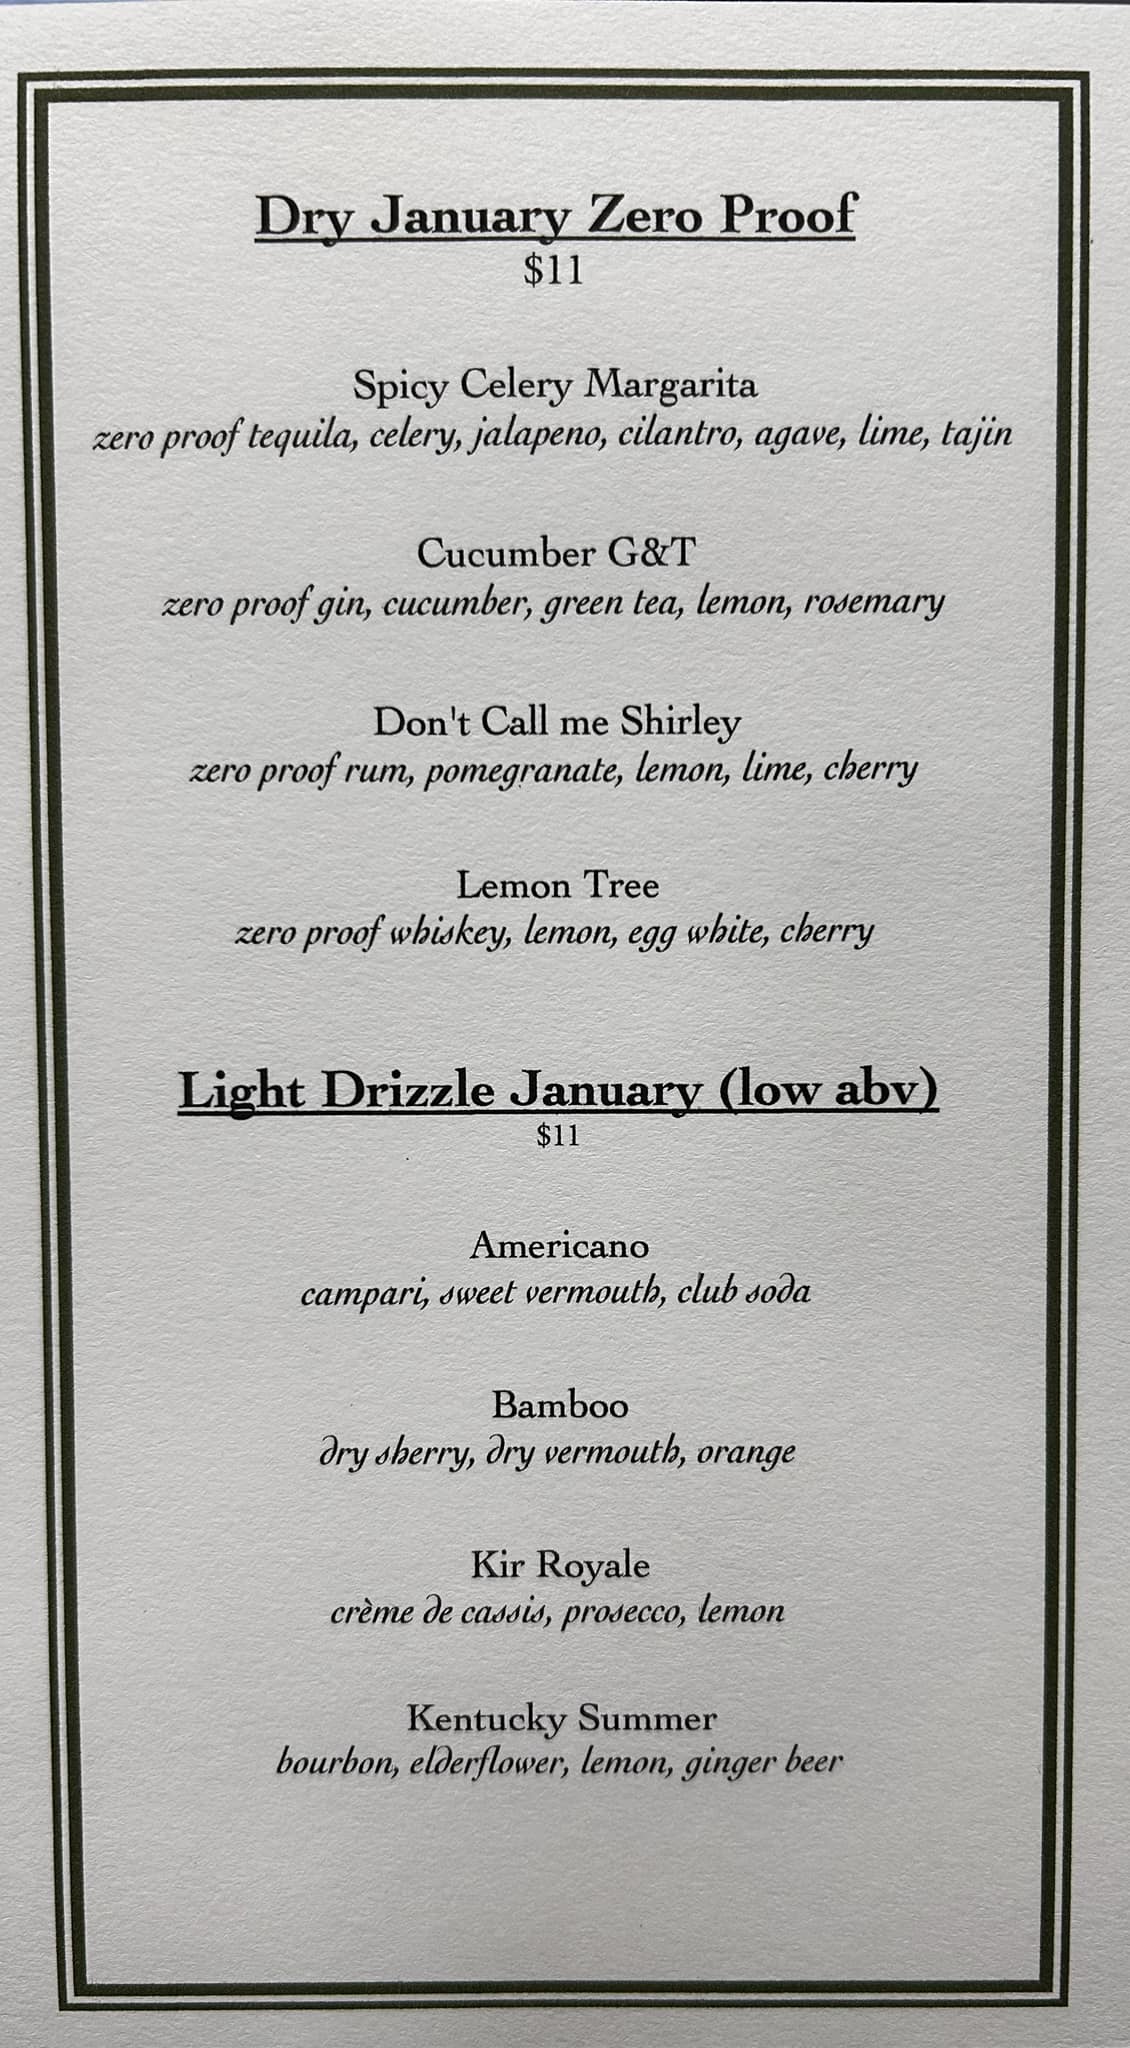 Dry January Zero Proof
$11
Spicy Celery Margarita
zero proof tequila, celery, jalapeno, cilantro, agave, lime, tajin
Cucumber G&T
zero proof gin, cucumber, green tea, lemon, rosemary
Don't Call me Shirley
zero proof rum, pomegranate, lemon, lime, cherry
Lemon Tree
zero proof whiskey, lemon, egg white, cherry
Light Drizzle January (low abv)
$11
Americano
campari, sweet vermouth, club soda
Bamboo
dry sherry, dry vermouth, orange
Kir Royale
crème de cassis, prosecco, lemon
Kentucky Summer
bourbon, elderflower, lemon, ginger beer